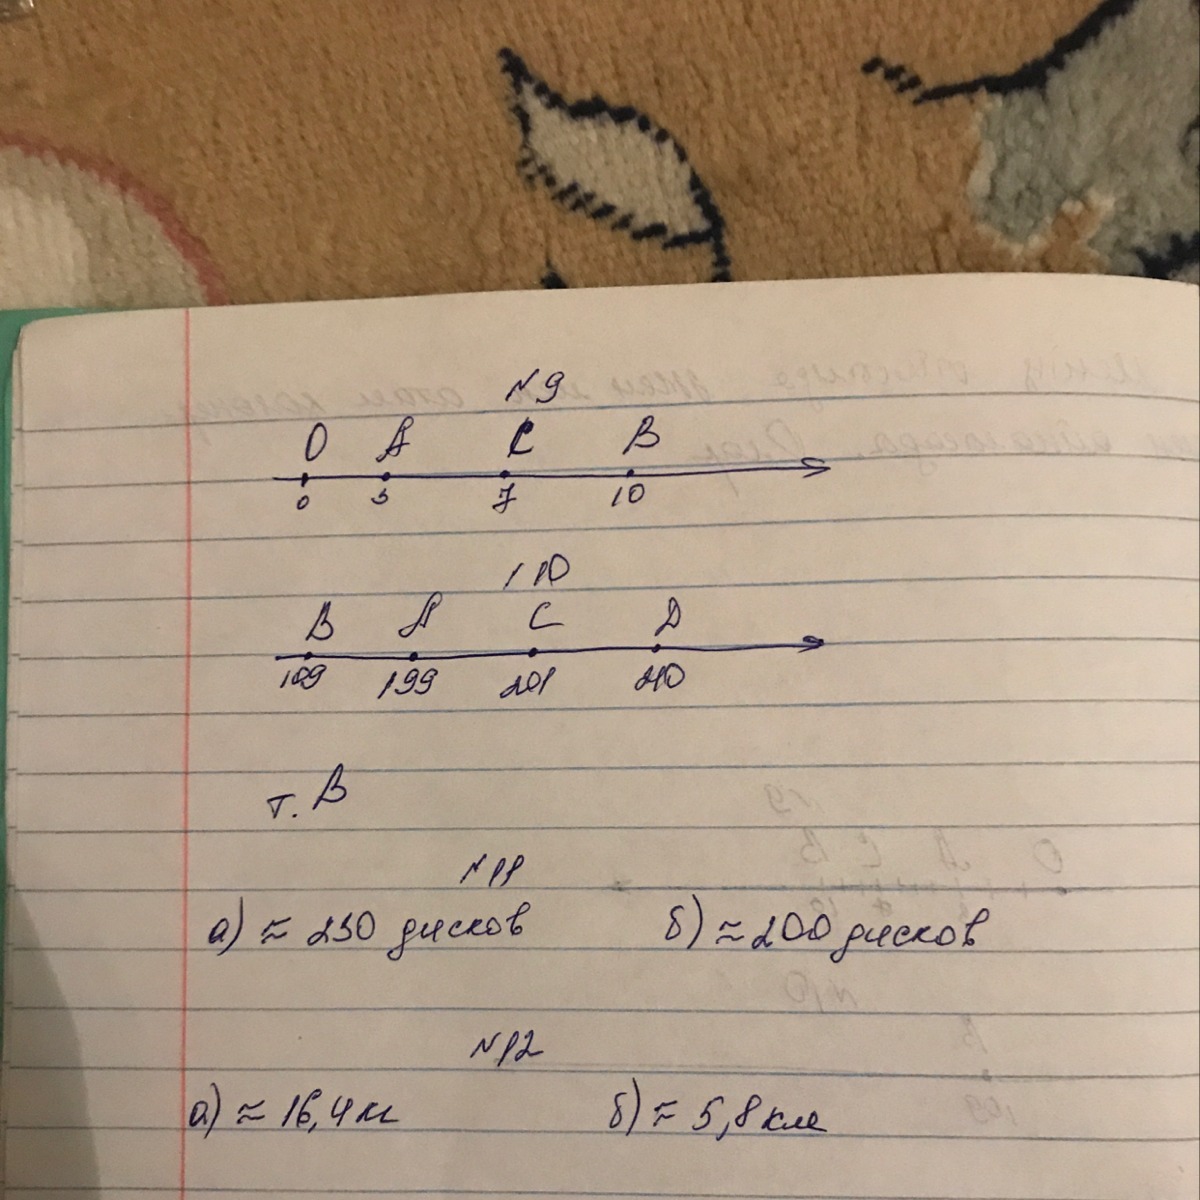 №9
О А С В
0 3 7 10
№10
В А С D
109 199 201 210
т. В
№11
а) ≈ 230 дисков б) ≈ 200 дисков
№12
а) ≈ 16,4 м б) ≈ 5,8 км